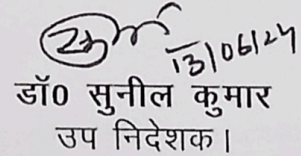 13/06/24
डॉ0 सुनील कुमार
उप निदेशक।